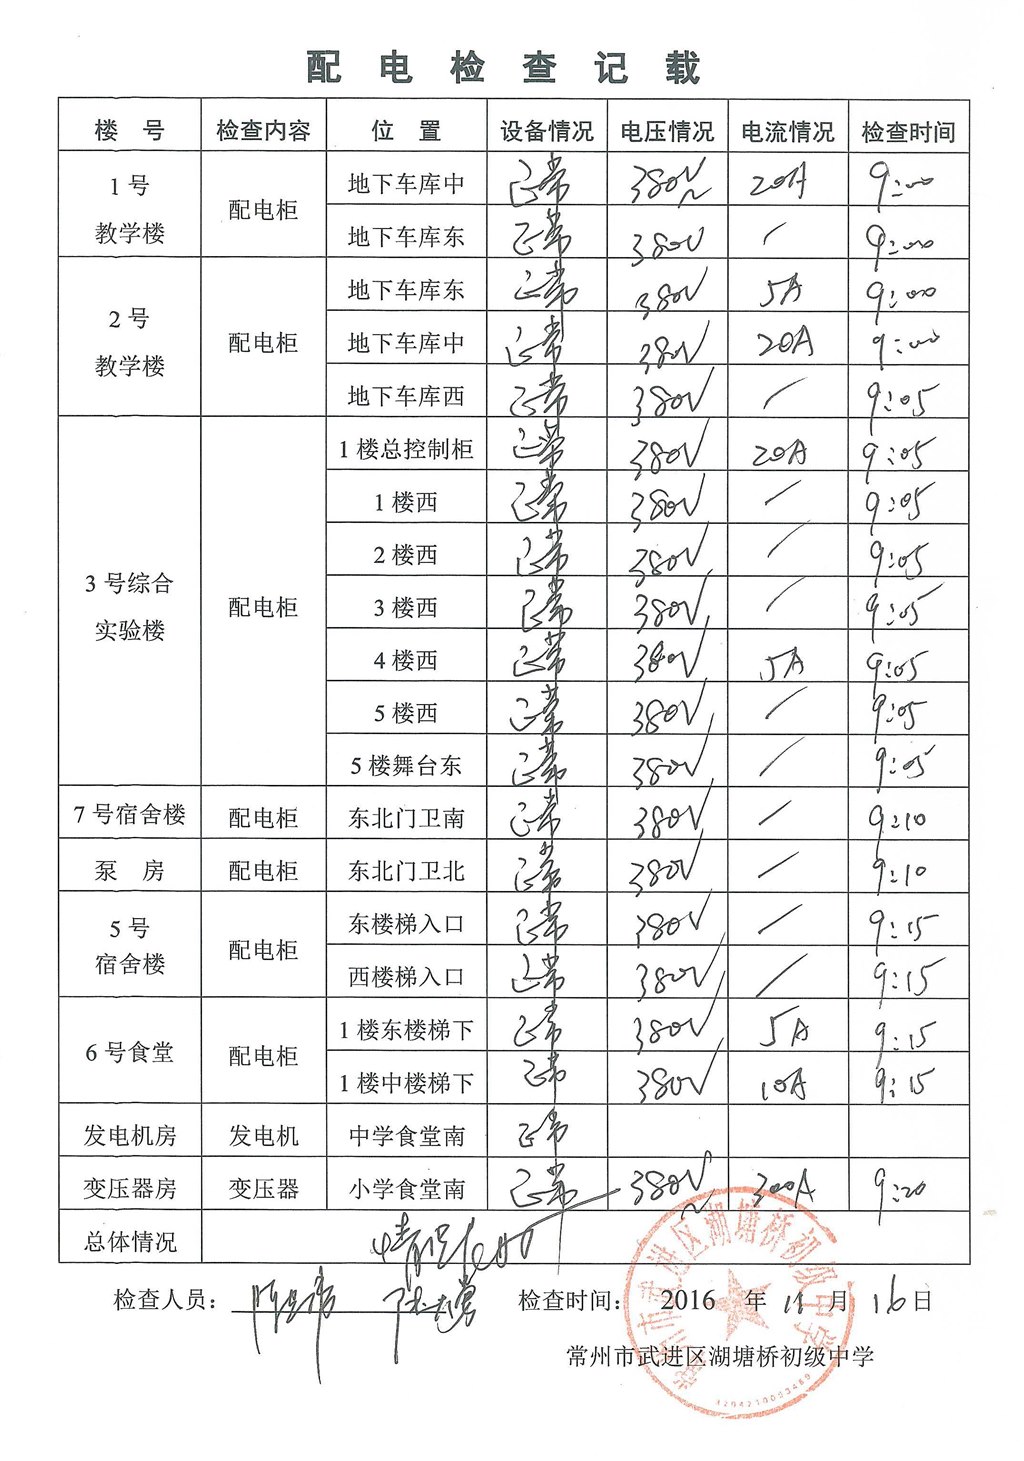 配电检查记载
楼号 检查内容 位置 设备情况 电压情况 电流情况 检查时间
1号教学楼 配电柜 地下车库中 正常 380V~ 20A 9:00
地下车库东 正常 380V / 9:00
2号教学楼 配电柜 地下车库东 正常 380V 5A 9:00
地下车库中 正常 380V 20A 9:00
地下车库西 正常 380V / 9:05
3号综合实验楼 配电柜 1楼总控制柜 正常 380V 20A 9:05
1楼西 正常 380V / 9:05
2楼西 正常 380V / 9:05
3楼西 正常 380V / 9:05
4楼西 正常 380V 5A 9:05
5楼西 正常 380V / 9:05
5楼舞台东 正常 380V / 9:05
7号宿舍楼 配电柜 东北门卫南 正常 380V / 9:10
泵房 配电柜 东北门卫北 正常 380V / 9:10
5号宿舍楼 配电柜 东楼梯入口 正常 380V / 9:15
西楼梯入口 正常 380V / 9:15
6号食堂 配电柜 1楼东楼梯下 正常 380V 5A 9:15
1楼中楼梯下 正常 380V 10A 9:15
发电机房 发电机 中学食堂南 正常
变压器房 变压器 小学食堂南 正常 380V~ 300A 9:20
总体情况
检查人员： 检查时间： 2016 年 11 月 16 日
常州市武进区湖塘桥初级中学
常州市武进区湖塘桥初级中学